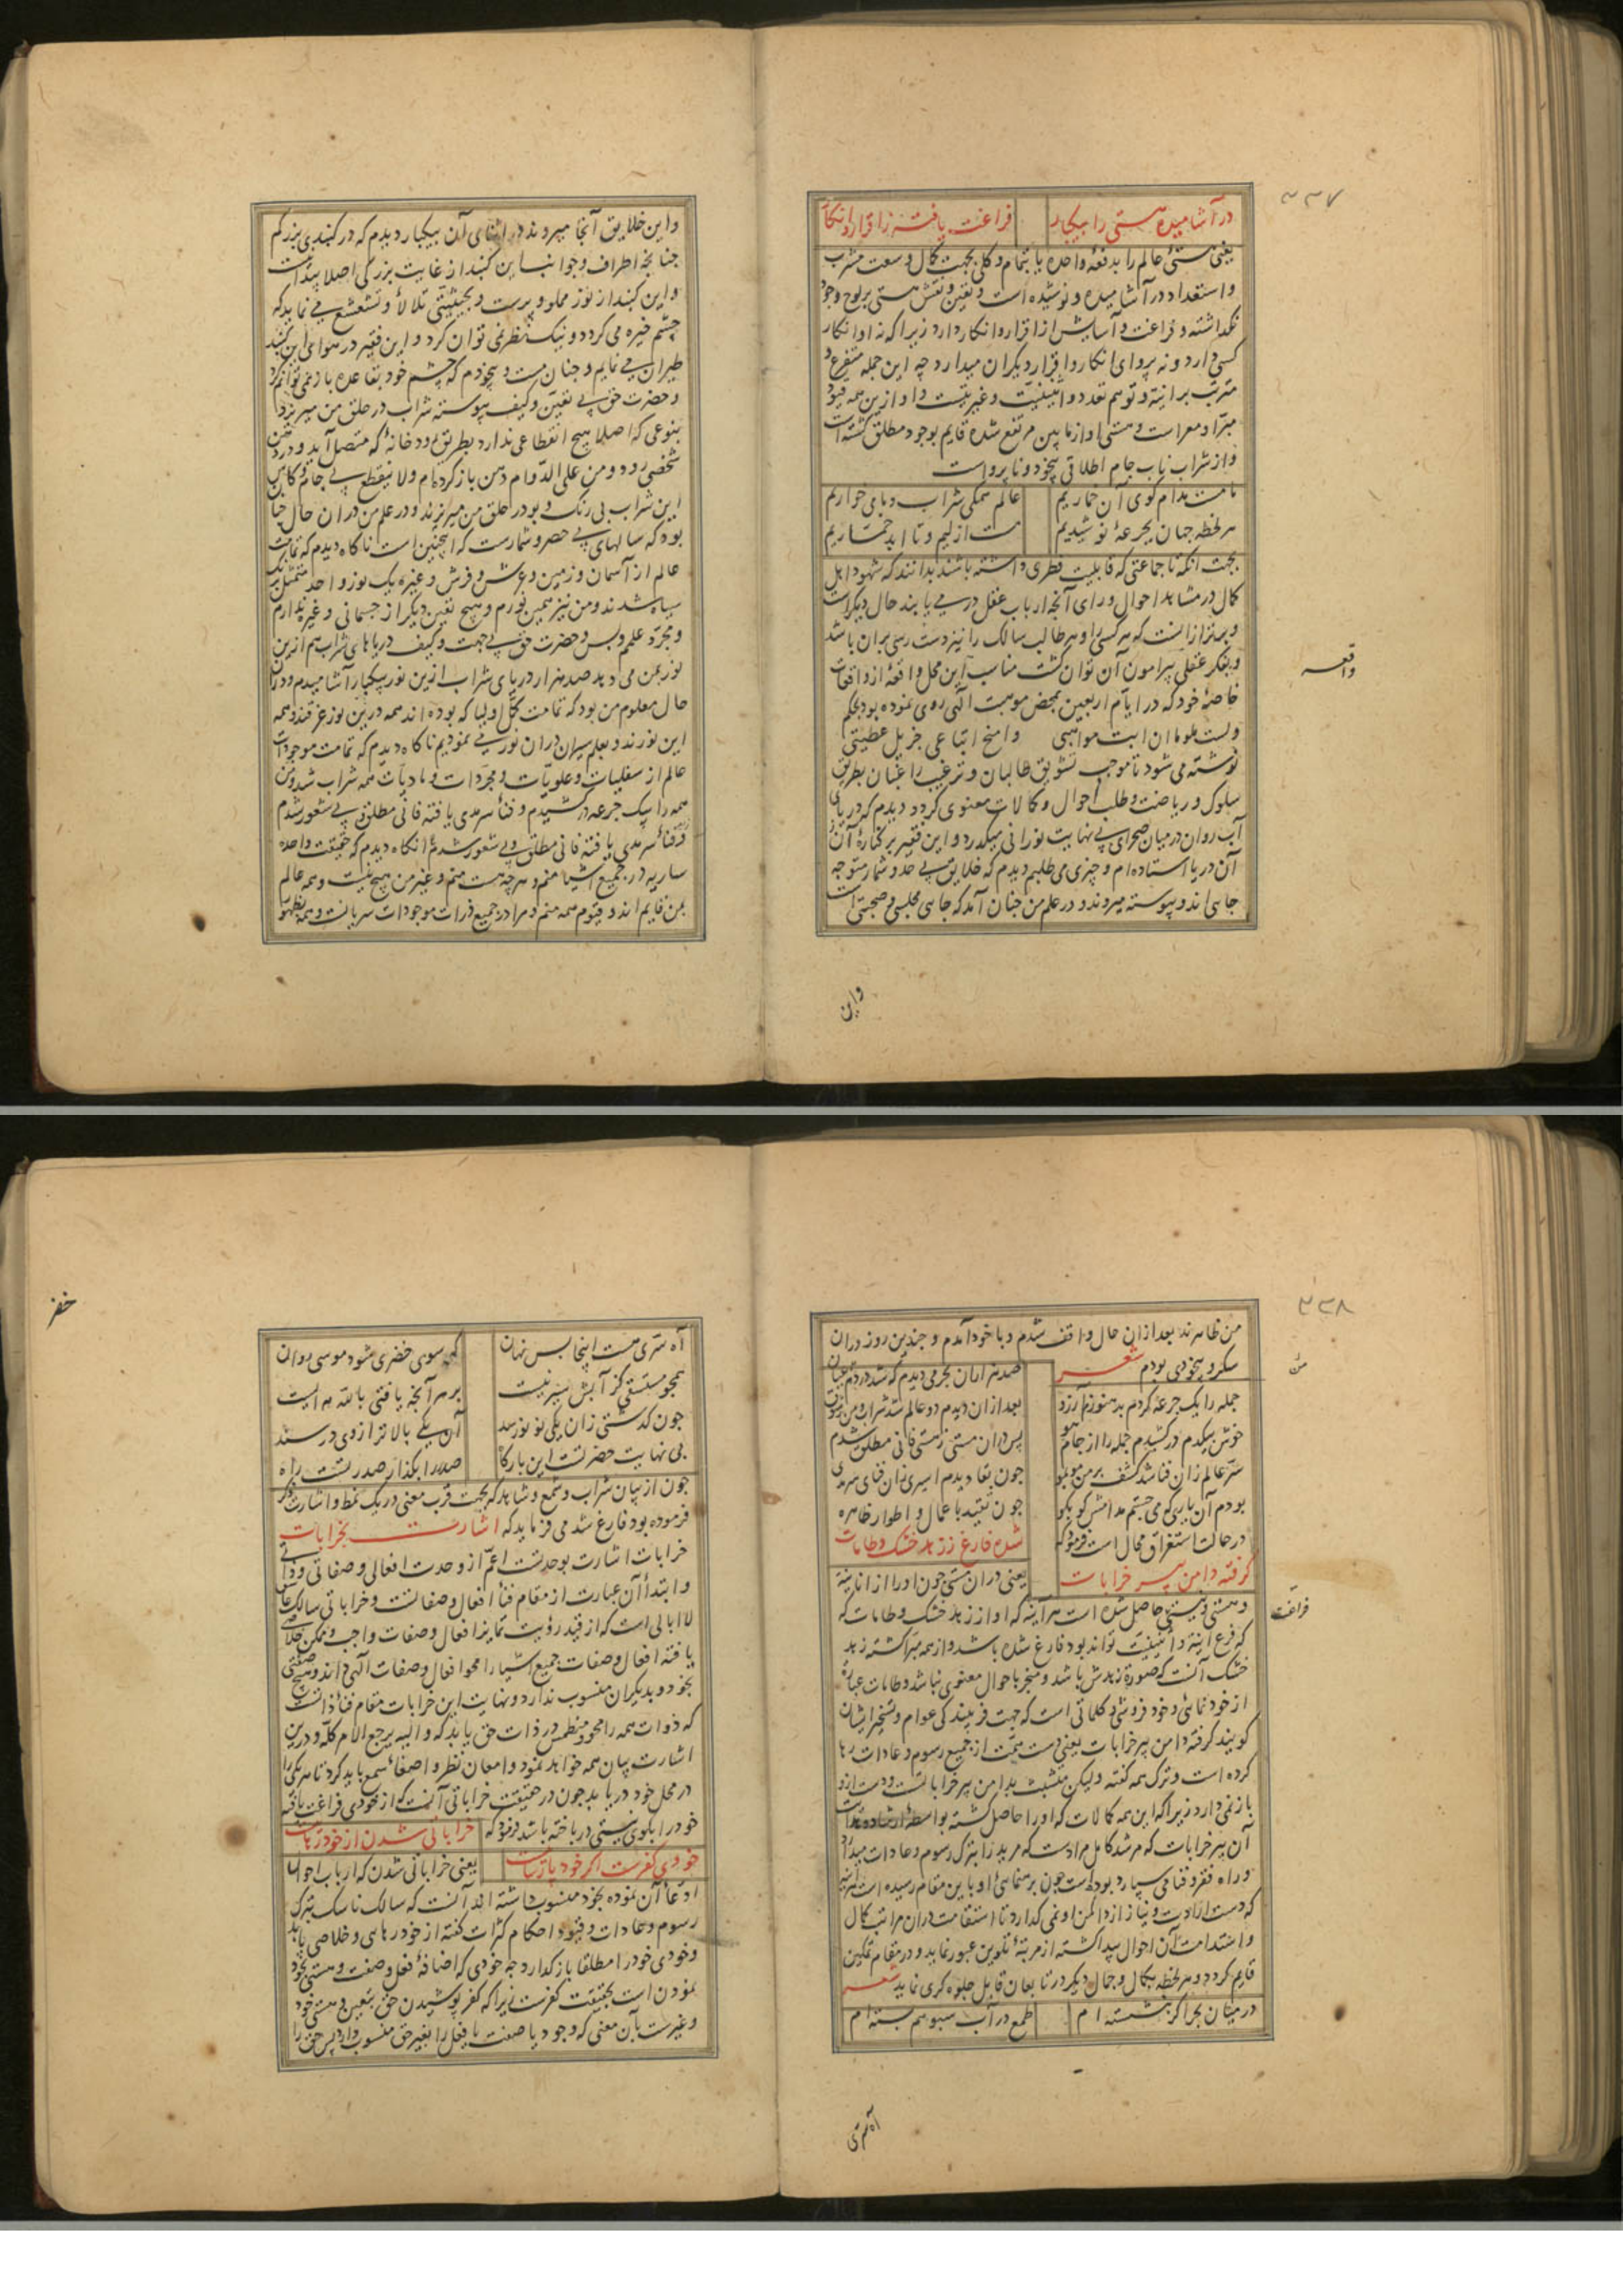 ۳۳۷
در آشامیده هستی را بیکبار فراغت یافته ز اقرار و انکار
یعنی هستی عالم را بدفعهٔ واحده یا بتمام و کلی بجهت کمال وسعت مشرب
و استعداد در آشامیده و نوشیده است و تعین و نقش هستی بر لوح وجود
نگذاشته و فراغت و آسایش از اقرار و انکار دارد زیرا که نه او انکار
کسی دارد و نه پروای انکار و اقرار دیگران میدارد چه این جمله متفرع و
مترتب بر انیت و توهم تعدد و اثنینیت و غیریتست و او ازین همه قیود
مبرا و معراست و هستی او از مابین مرتفع شده قایم بوجود مطلق گشته است
و از شراب ناب جام اطلاقی بیخود و ناپرواست
ما مست مدام کوی آن خماریم عالم همگی شراب و ما می خواریم
هر لحظه جهان بجرعهٔ نوشیدیم مست ازلیم و تا ابد خماریم
بجهت آنکه تا جماعتی که قابلیت فطری داشته باشند بدانند که شهود اهل
کمال در مشاهد احوال ورای آنچه ارباب عقل در می یابند حال دیگرست
و برتر از آنست که هر کسی را و هر طالب سالک را نیز دست رسی بران باشد
و بفکر عقلی پیرامون آن توان گشت مناسب این محل واقعهٔ از واقعات
واقعه
خاصهٔ خود که در ایام اربعین بمحض موهبت الهی روی نموده بود بحکم
ولست ملوما ان ابث مواهبی وامنح اتباعی جزیل عطیتی
نوشته می شود تا موجب تشویق طالبان و ترغیب راغبان بطریق
سلوک و ریاضت و طلب احوال و کمالات معنوی گردد دیدم که دریای
آب روان در میان صحرای بی نهایت نورانی میگذرد و این فقیر بر کنارهٔ آن
آن دریا استاده ام و چیزی می طلبم دیدم که خلایق بی حد و شمار متوجه
جایی اند و پیوسته میروند و در علم من چنان آمد که جایی مجلسی و صحبتی است
واین
و این خلایق آنجا میروند در اثنای آن بیکبار دیدم که در گنبدی بزرگم
چنانچه اطراف و جوانب این گنبد از غایت بزرگی اصلا پیدا نیست
و این گنبد از نور مملو و پرست و بحیثیتی تلألأ و تشعشع می نماید که
چشم خیره می گردد و نیک نظر نمی توان کرد و این فقیر در هوای این گنبد
طیران می نمایم و چنان مست و بیخودم که چشم خود بقاعده باز نمی توانم کرد
و حضرت حق بی تعین و کیف پیوسته شراب در حلق من میریزد
بنوعی که اصلا هیچ انقطاعی ندارد بطریق رودخانهٔ که متصل آید و در دهن
شخصی رود و من علی الدوام دهن باز کرده ام و لا ینقطع بی جام و کاس
این شراب بی رنگ و بو در حلق من میریزند و در علم من در ان حال چنان
بود که سالهای بی حصر و شمارست که اینچنین است ناگاه دیدم که تمامت
عالم از آسمان و زمین و عرش و فرش و غیره یک نور واحد متمثل برنگ
سیاه شدند و من نیز همین نورم و هیچ تعین دیگر از جسمانی و غیره ندارم
و مجرد علمم و بس و حضرت حق بی جهت و کیف دریاهای شراب هم ازین
نور بمن می دهد صد هزار دریای شراب ازین نور بیکبار آشامیدم و دران
حال معلوم من بود که تمامت کمل اولیا که بوده اند همه درین نور غرقند و همه
این نورند و بعلم سیران دران نور می نمودیم ناگاه دیدم که تمامت موجودات
عالم از سفلیات و علویات و مجردات و مادیات همه شراب شد و من
همه را بیک جرعه در کشیدم و فناء سرمدی یافته فانی مطلق و بی شعور شدم
و فناء سرمدی یافته فانی مطلق و بی شعور شدم آنگاه دیدم که حقیقت واحده
ساریه در جمیع اشیا منم و هر چه هست منم و غیر من هیچ نیست و همه عالم
بمن قایم اند و قیوم همه منم و مرا در جمیع ذرات موجودات سریانست و همه بظهور
۳۳۸
من ظاهرند بعد ازان حال واقف شدم و با خود آمدم و چندین روز دران
سکر و بیخودی بودم شعر صد هزاران بحر می دیدم که شد در دم عیان
جمله را یک جرعه کردم بد هنوزم آرزو بعد ازان دیدم دو عالم شد شراب و من ز ذوق
خوش بیکدم در کشیدم جمله را از جام هو پس دران مستی ز هستی فانی مطلق شدم
سر عالم زان فنا شد کشف بر من مو بمو چون بقا دیدم اسیری زان فنای سرمدی
بودم آن یاری که می جستم مدامش کو بکو چون تقید با عمال و اطوار ظاهره
در حالت استغراق محال است فرمود که شده فارغ ز زهد خشک و طامات
گرفته دامن پیر خرابات یعنی دران مستی چون او را از انانیة
و هستی و نیستی حاصل شده است هر آینه که او از زهد خشک و طامات که
فراغت
که فرع انیة و اثنینیت تواند بود فارغ شده باشد و از همه مبرا گشته زهد
خشک آنست که صورة زهدش باشد و منجر باحوال معنوی نباشد و طامات عبارة
از خود نمائی و خود فروشی و کلماتی است که جهت فریبندگی عوام و تسخیر ایشان
گویند گرفته دامن پیر خرابات یعنی دست همت از جمیع رسوم و عادات رها
کرده است و ترک همه گفته ولیکن متشبث بدامن پیر خراباتست و دست ازو
باز نمی دارد زیرا که این همه کمالات که او را حاصل گشته بواسطهٔ ارشاد
آن پیر خرابات که مرشد کامل مرادست که مرید را بترک رسوم و عادات میدارد
و راه فقر و فنا می سپارد بوده است چون برهنمایی او باین مقام رسیده است
که دست ارادت و نیاز از دامن او نمی گذارد تا استقامت دران مراتب کمال
و استدامت آن احوال پیدا گشته از مرتبهٔ تلوین عبور نماید و در مقام تمکین
قایم گردد و هر لحظه بکمال و جمال دیگر درتابعان قابل جلوه گری نماید شعر
در میان بحر اگر بنشسته ام طمع در آب سبو هم بسته ام
آه سری
آه سری هست اینجا بس نهان که سوی خضری شود موسی روان
همچو مستسقی کز آبش سیر نیست بر هر آنچه یافتی بالله مه ایست
چون گذشتی زان یکی نو نو رسد آن یکی بالاتر از وی در رسد
بی نهایت حضرتست این بارگاه صدر را بگذار صدر تست راه
چون از بیان شراب و شمع و شاهد که بجهت قرب معنی در یک نمط و اشارت ذکر
فرموده بود فارغ شد می فرماید که اشارت بخرابات
خرابات اشارت بوحدتست اعم از وحدت افعالی و صفاتی و ذاتی
و ابتدأ آن عبارت از مقام فناء افعال و صفاتست و خراباتی سالک عاشق
لاابالی است که از قید رؤیت تمایز افعال و صفات واجب و ممکن خلاصی
یافته افعال و صفات جمیع اشیا را محو افعال و صفات الهی داند و هیچ صفتی
بخود و بدیگران منسوب ندارد و نهایت این خرابات مقام فناء ذاتست
که ذوات همه را محو و منطمس در ذات حق یابد که والیه یرجع الامر کله و درین
اشارت بیان همه خواهد نمود و امعان نظر و اصغاء سمع باید کرد تا هر یکی را
در محل خود دریابد چون در حقیقت خراباتی آنست که از خودی فراغت یافته
خود را بکوی نیستی درباخته باشد فرمود که خراباتی شدن از خود رهائیست
خودی کفرست اگر خود پارسائیست یعنی خراباتی شدن که ارباب احوال
ادعاء آن نموده بخود منسوب داشته اند آنست که سالک ناسک بترک
رسوم و عادات و قیود احکام کثرات گفته از خود رهایی و خلاصی یابد
و خودی خود را مطلقا باز گذارد چه خودی که اضافهٔ فعل و صفت و هستی بخود
نمودن است بحقیقت کفرست زیرا که کفر پوشیدن حق بتعین و هستی خود
و غیرست بآن معنی که وجود یا صفت یا فعل را بغیر حق منسوب دارد پس حق را